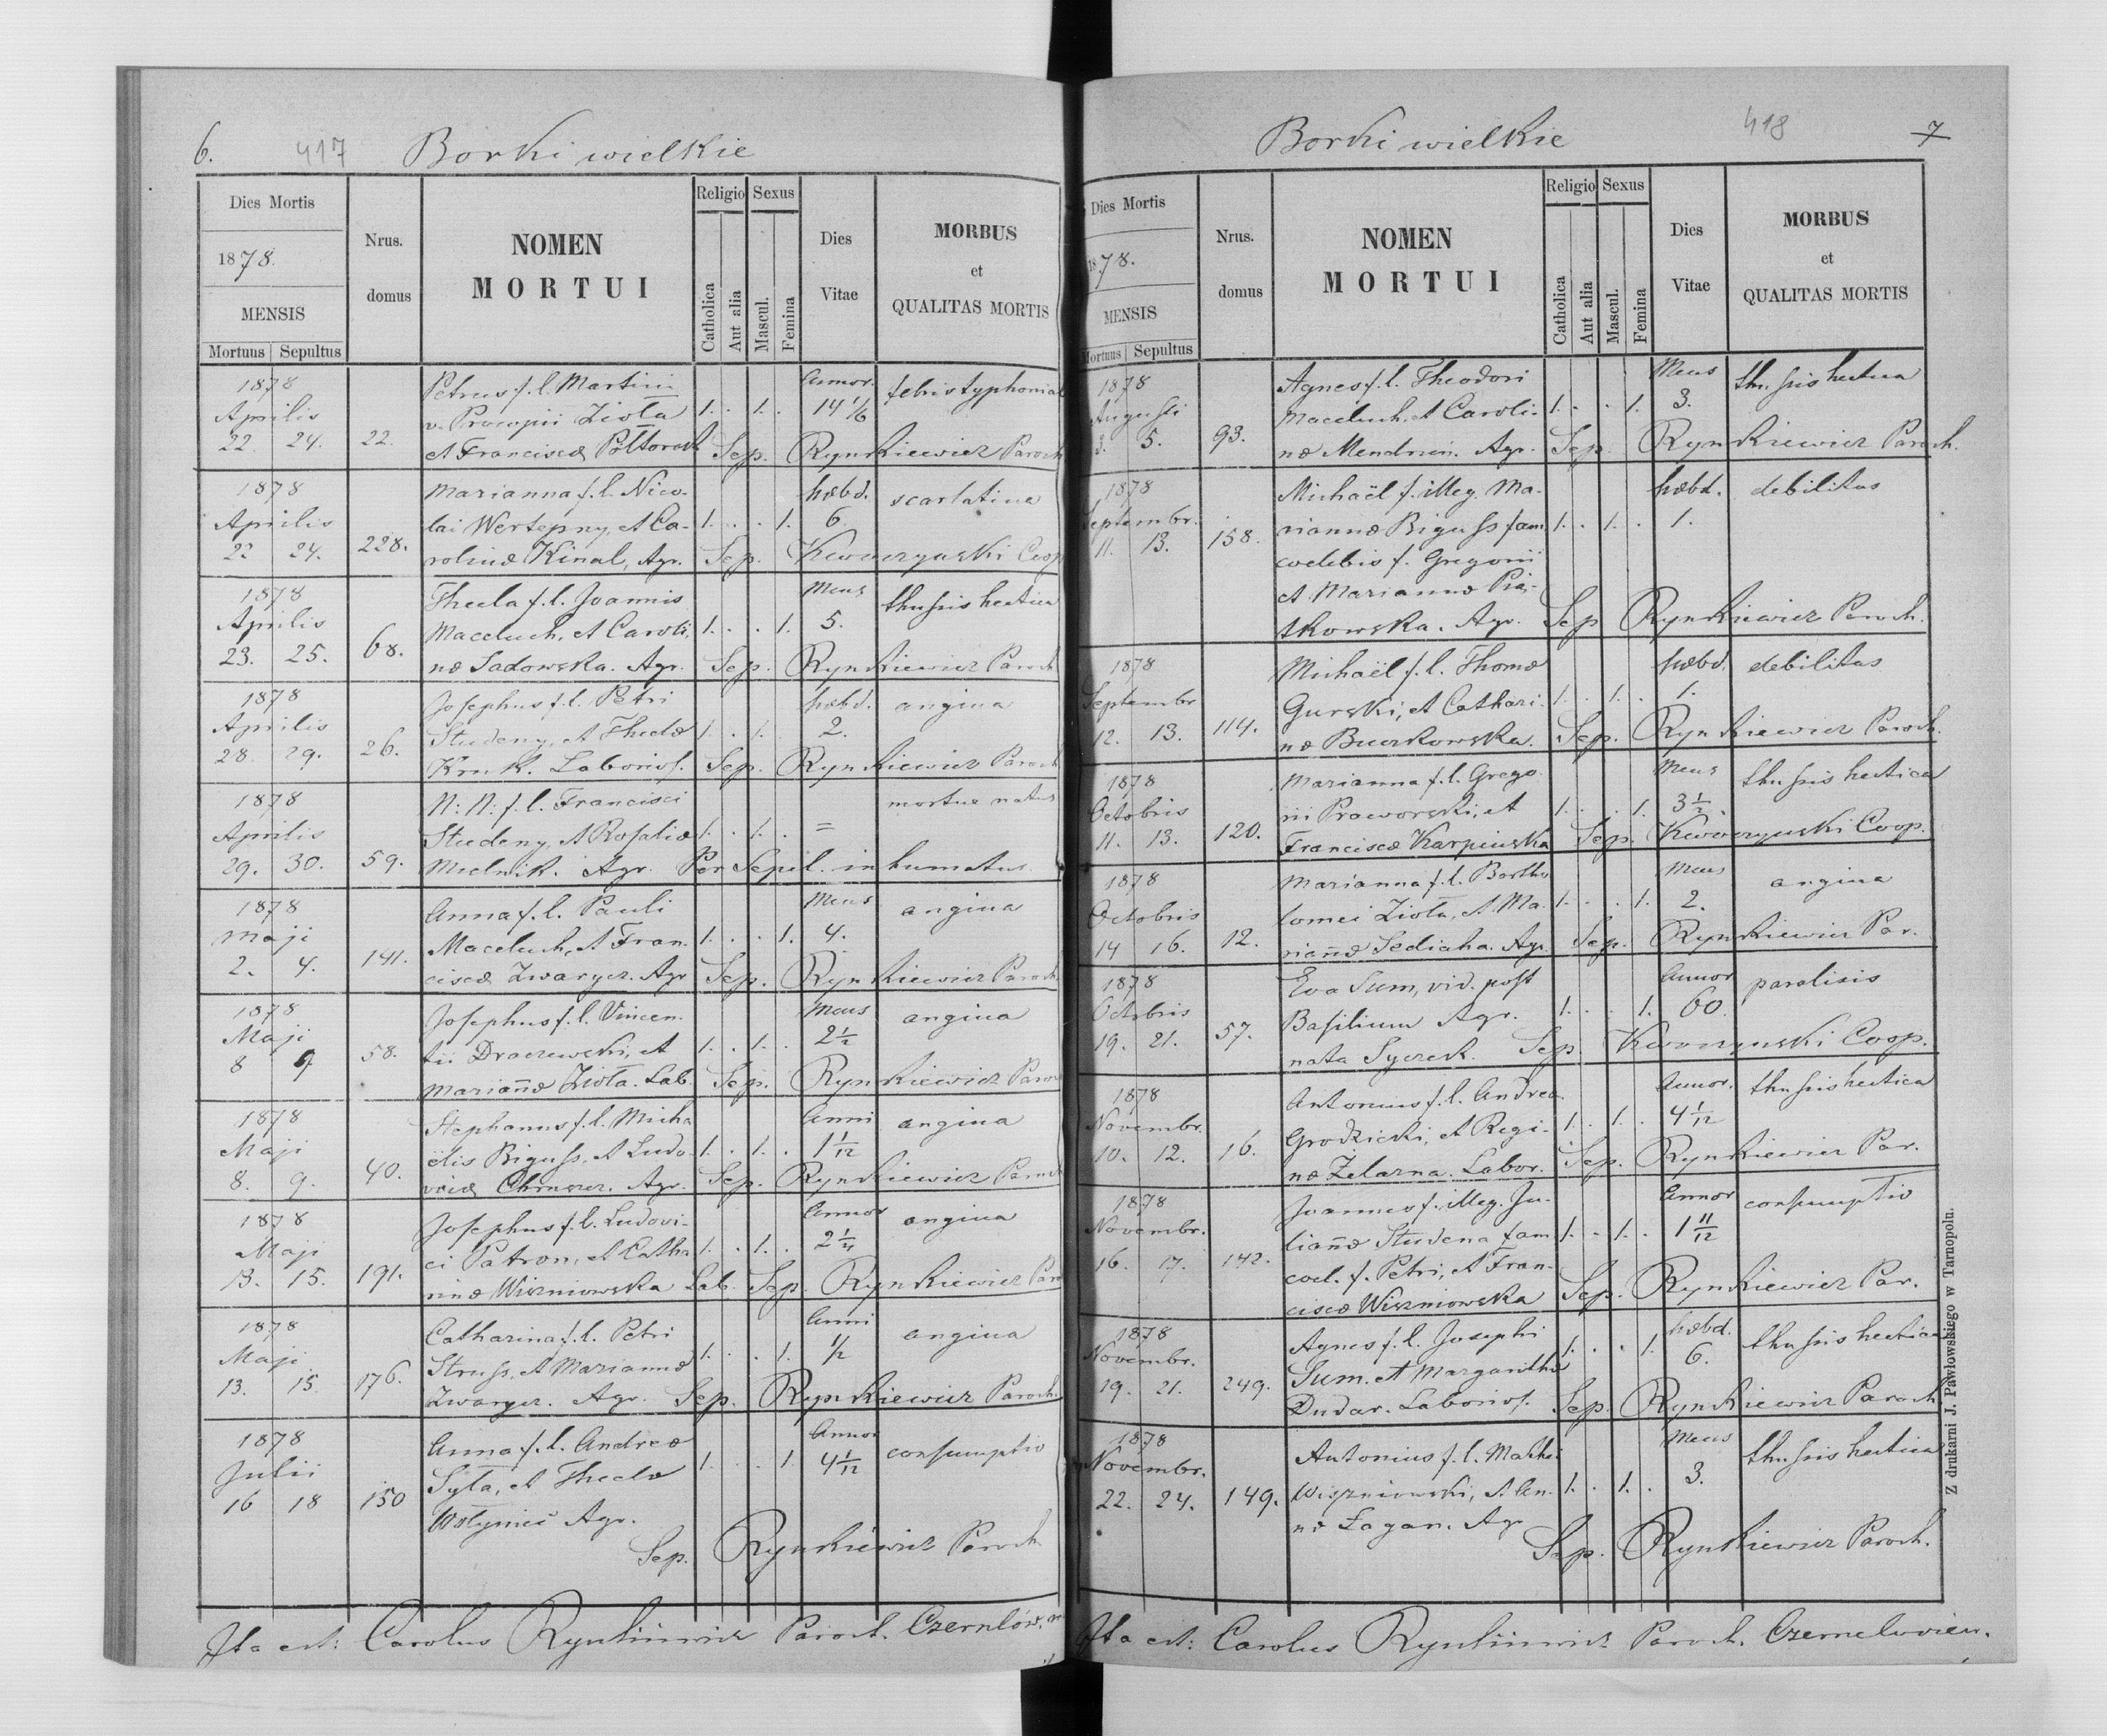 6. 417 Borki wielkie
Dies Mortis
1878.
MENSIS
Mortuus Sepultus
Nrus. domus
NOMEN
MORTUI
Religio Sexus
Catholica
Aut alia
Mascul.
Femina
Dies
Vitae
MORBUS
et
QUALITAS MORTIS
1878 Petrus f. l. Martini Annor. febris typhoma
Aprilis v. Procopii Zioła 1. . 1. . 14 1/6
22 24. 22. et Franciscæ Półtorak Sep. Rynkiewicz Paroch
1878 Marianna f. l. Nico- hæbd. scarlatina
Aprilis lai Wertepny, et Ca- 1. . . 1. 6.
22 24. 228. rolinæ Kinal, Agr. Sep. Kwoczyński Coop
1878 Thecla f. l. Joannis Mens thussis hectica
Aprilis Maceluch, et Caroli- 1. . . 1. 5.
23. 25. 68. næ Sadowska. Agr. Sep. Rynkiewicz Paroch
1878 Josephus f. l. Petri hæbd. angina
Aprilis Studeny, et Theclæ 1. . 1. . 2.
28. 29. 26. Kruk. Laborios. Sep. Rynkiewicz Paroch
1878 N: N: f. l. Francisci mortue natus
Aprilis Studeny, et Rosaliæ 1. . 1. . =
29. 30. 59. Mielnik. Agr. Per Sepil. inhumatus
1878 Anna f. l. Pauli Mens angina
Maji Maceluch, et Fran- 1. . . 1. 4.
2. 4. 141. ciscæ Zwarycz. Agr Sep. Rynkiewicz Paroch
1878 Josephus f. l. Vincen- Mens angina
Maji tii Draczewski, et 1. . 1. . 2 1/2
8 9 58. Mariannæ Zioła. Lab. Sep. Rynkiewicz Paroch
1878 Stephanus f. l. Micha Anni angina
Maji ëlis Biguss, et Ludo- 1. . 1. . 1 1/12
8. 9. 40. vicæ Agr. Sep. Rynkiewicz Paroch
1878 Josephus f. l. Ludovi- Annor angina
Maji ci Patron, et Catha 1. . 1. . 2 1/4
13. 15. 191. rinæ Wiszniowska Lab. Sep. Rynkiewicz Paro
1878 Catharina f. l. Petri Anni angina
Maji Struss, et Mariannæ 1. . . 1. 1/2
13. 15. 176. Zwarycz. Agr. Sep. Rynkiewicz Paroch.
1878 Anna f. l. Andreæ Annor consumptio
Julii Syta, et Theclæ 1. . . 1. 4 1/12
16 18 150 Wołyniec Agr.
Sep. Rynkiewicz Paroch
Ita est: Carolus Rynkiewicz Paroch.
Borki wielkie 418 7
Dies Mortis
1878.
MENSIS
Mortuus Sepultus
Nrus. domus
NOMEN
MORTUI
Religio Sexus
Catholica
Aut alia
Mascul.
Femina
Dies
Vitae
MORBUS
et
QUALITAS MORTIS
1878 Agnes f. l. Theodori Mens thussis hectica
Augusti Maceluch, et Caroli- 1. . . 1. 3.
3. 5. 93. næ Agr. Sep. Rynkiewicz Paroch.
1878 Michaël f. illeg. Ma- hæbd. debilitas
Septembr. riannæ Biguss fam. 1. . 1. . 1.
11. 13. 158. coelebis f. Gregorii
et Mariannæ Pią-
tkowska. Agr. Sep Rynkiewicz Paroch.
1878 Michaël f. l. Thomæ hæbd. debilitas
Septembr Gurski, et Cathari- 1. . 1. . 1.
12. 13. 114. næ Buczkowska. Sep. Rynkiewicz Paroch.
1878 Marianna f. l. Grego- Mens thussis hectica
Octobris rii Praworski, et 1. . . 1. 3 1/2
11. 13. 120. Franciscæ Karpinska Sep. Kwoczyński Coop.
1878 Marianna f. l. Bartho Mens angina
Octobris lomei Zioła, et Ma- 1. . . 1. 2.
14 16. 12. riannæ Sediaha. Agr. Sep. Rynkiewicz Par.
1878 Eva Sum, vid. post Annor paralisis
Octobris Basilium Agr. 1. . . 1. 60.
19. 21. 57. nata Syczek. Sep Kwoczyński Coop.
1878 Antonius f. l. Andreæ Annor. thussis hectica
Novembr. Grodzicki, et Regi- 1. . 1. . 4 1/12
10. 12. 16. næ Żelazna. Labor. Sep. Rynkiewicz Par.
1878 Joannes f. illeg. Ju- Annor consumptio
Novembr. liannæ Studena fam 1. . 1. . 1 11/12
16. 17. 142. coel. f. Petri, et Fran-
ciscæ Wiszniowska Sep. Rynkiewicz Par.
1878 Agnes f. l. Josephi hæbd. thussis hectica
Novembr. Sum. et Margarithæ 1. . . 1. 6.
19. 21. 249. Dudar. Laborios. Sep. Rynkiewicz Paroch.
1878 Antonius f. l. Mathei Mens thussis hectica
Novembr. Wiszniowski, et An- 1. . 1. . 3.
22. 24. 149. næ Łagan. Agr
Sep. Rynkiewicz Paroch.
Ita est: Carolus Rynkiewicz Paroch. Czernelovien.
Z drukarni J. Pawłowskiego w Tarnopolu.